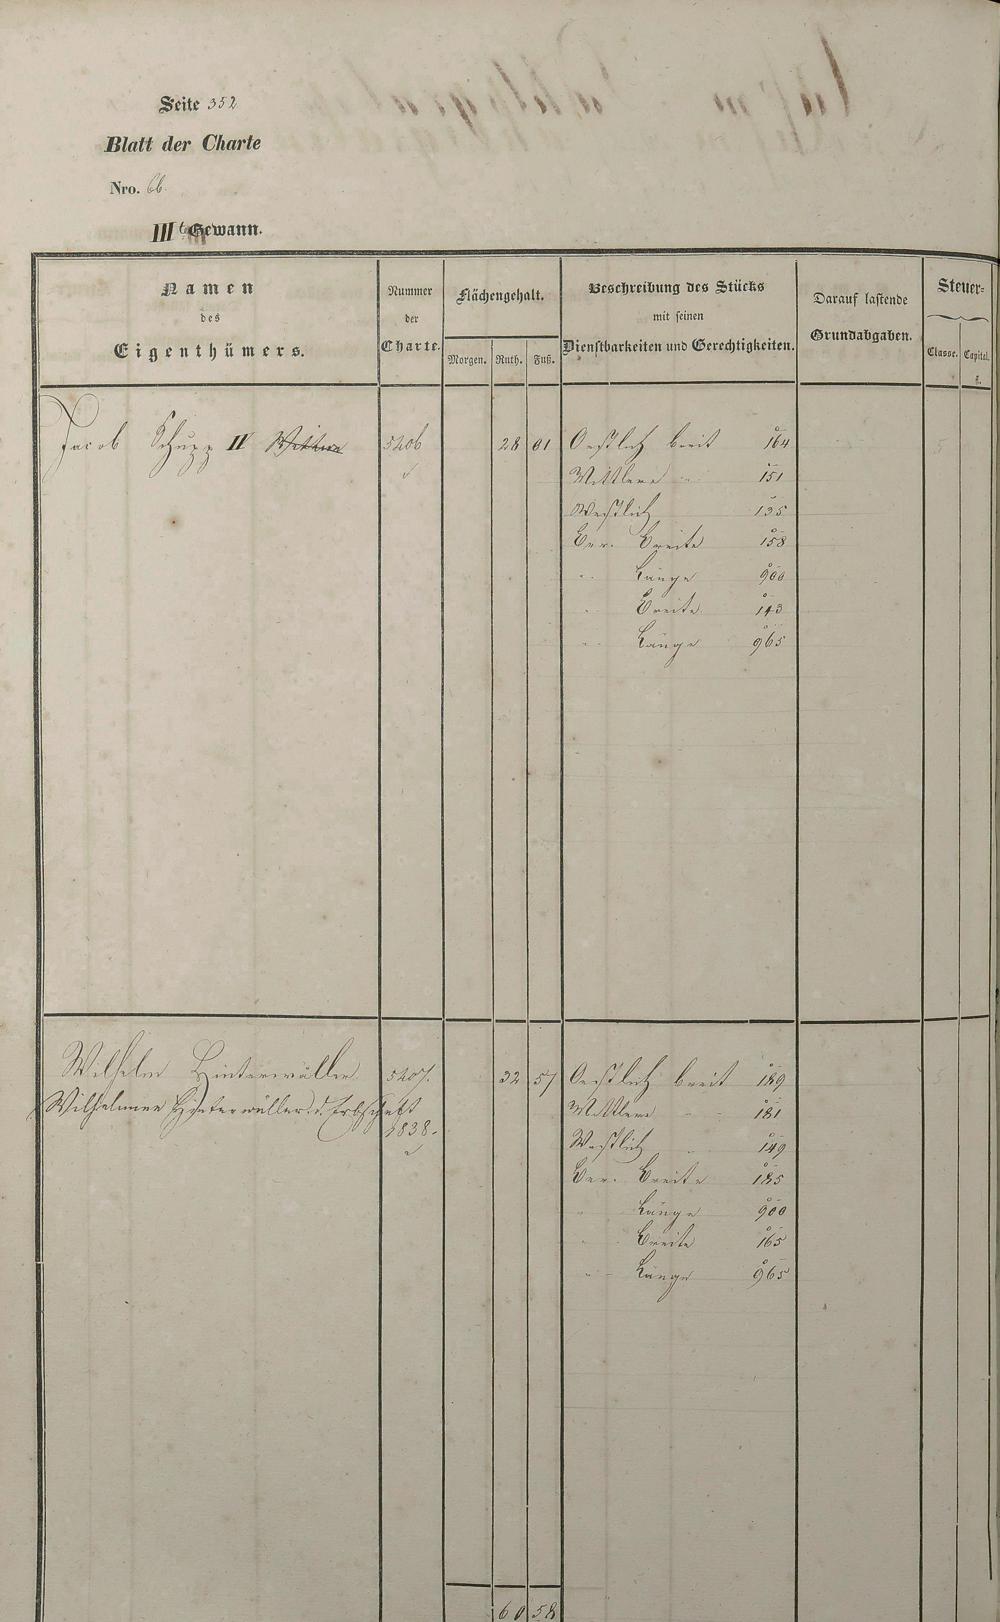 Seite 352
Blatt der Charte
Nro. 66.
III te Gewann.
Namen
des
Eigenthümers.
Nummer
der
Charte.
Flächengehalt.
Morgen. Ruth. Fuß.
Beschreibung des Stücks
mit seinen
Dienstbarkeiten und Gerechtigkeiten.
Darauf lastende
Grundabgaben.
Steuer-
Classe. Capital.
f.
Jacob Schupp IV Wittwe 5206 28 01 Oestlich breit 164
Mittlere " 151
Westlich 135
Ber. Breite 158
" Länge 900
" Breite 143
" Länge 965
Wilhelm Hinterwäller 5207. 32 57 Oestlich breit 189
Wilhelmine Hinterwäller d. Erbschaft Mittlere " " 181
1838. Westlich " 149
Ber. Breite 185
" Länge 900
" Breite 165
" Länge 965
60 58